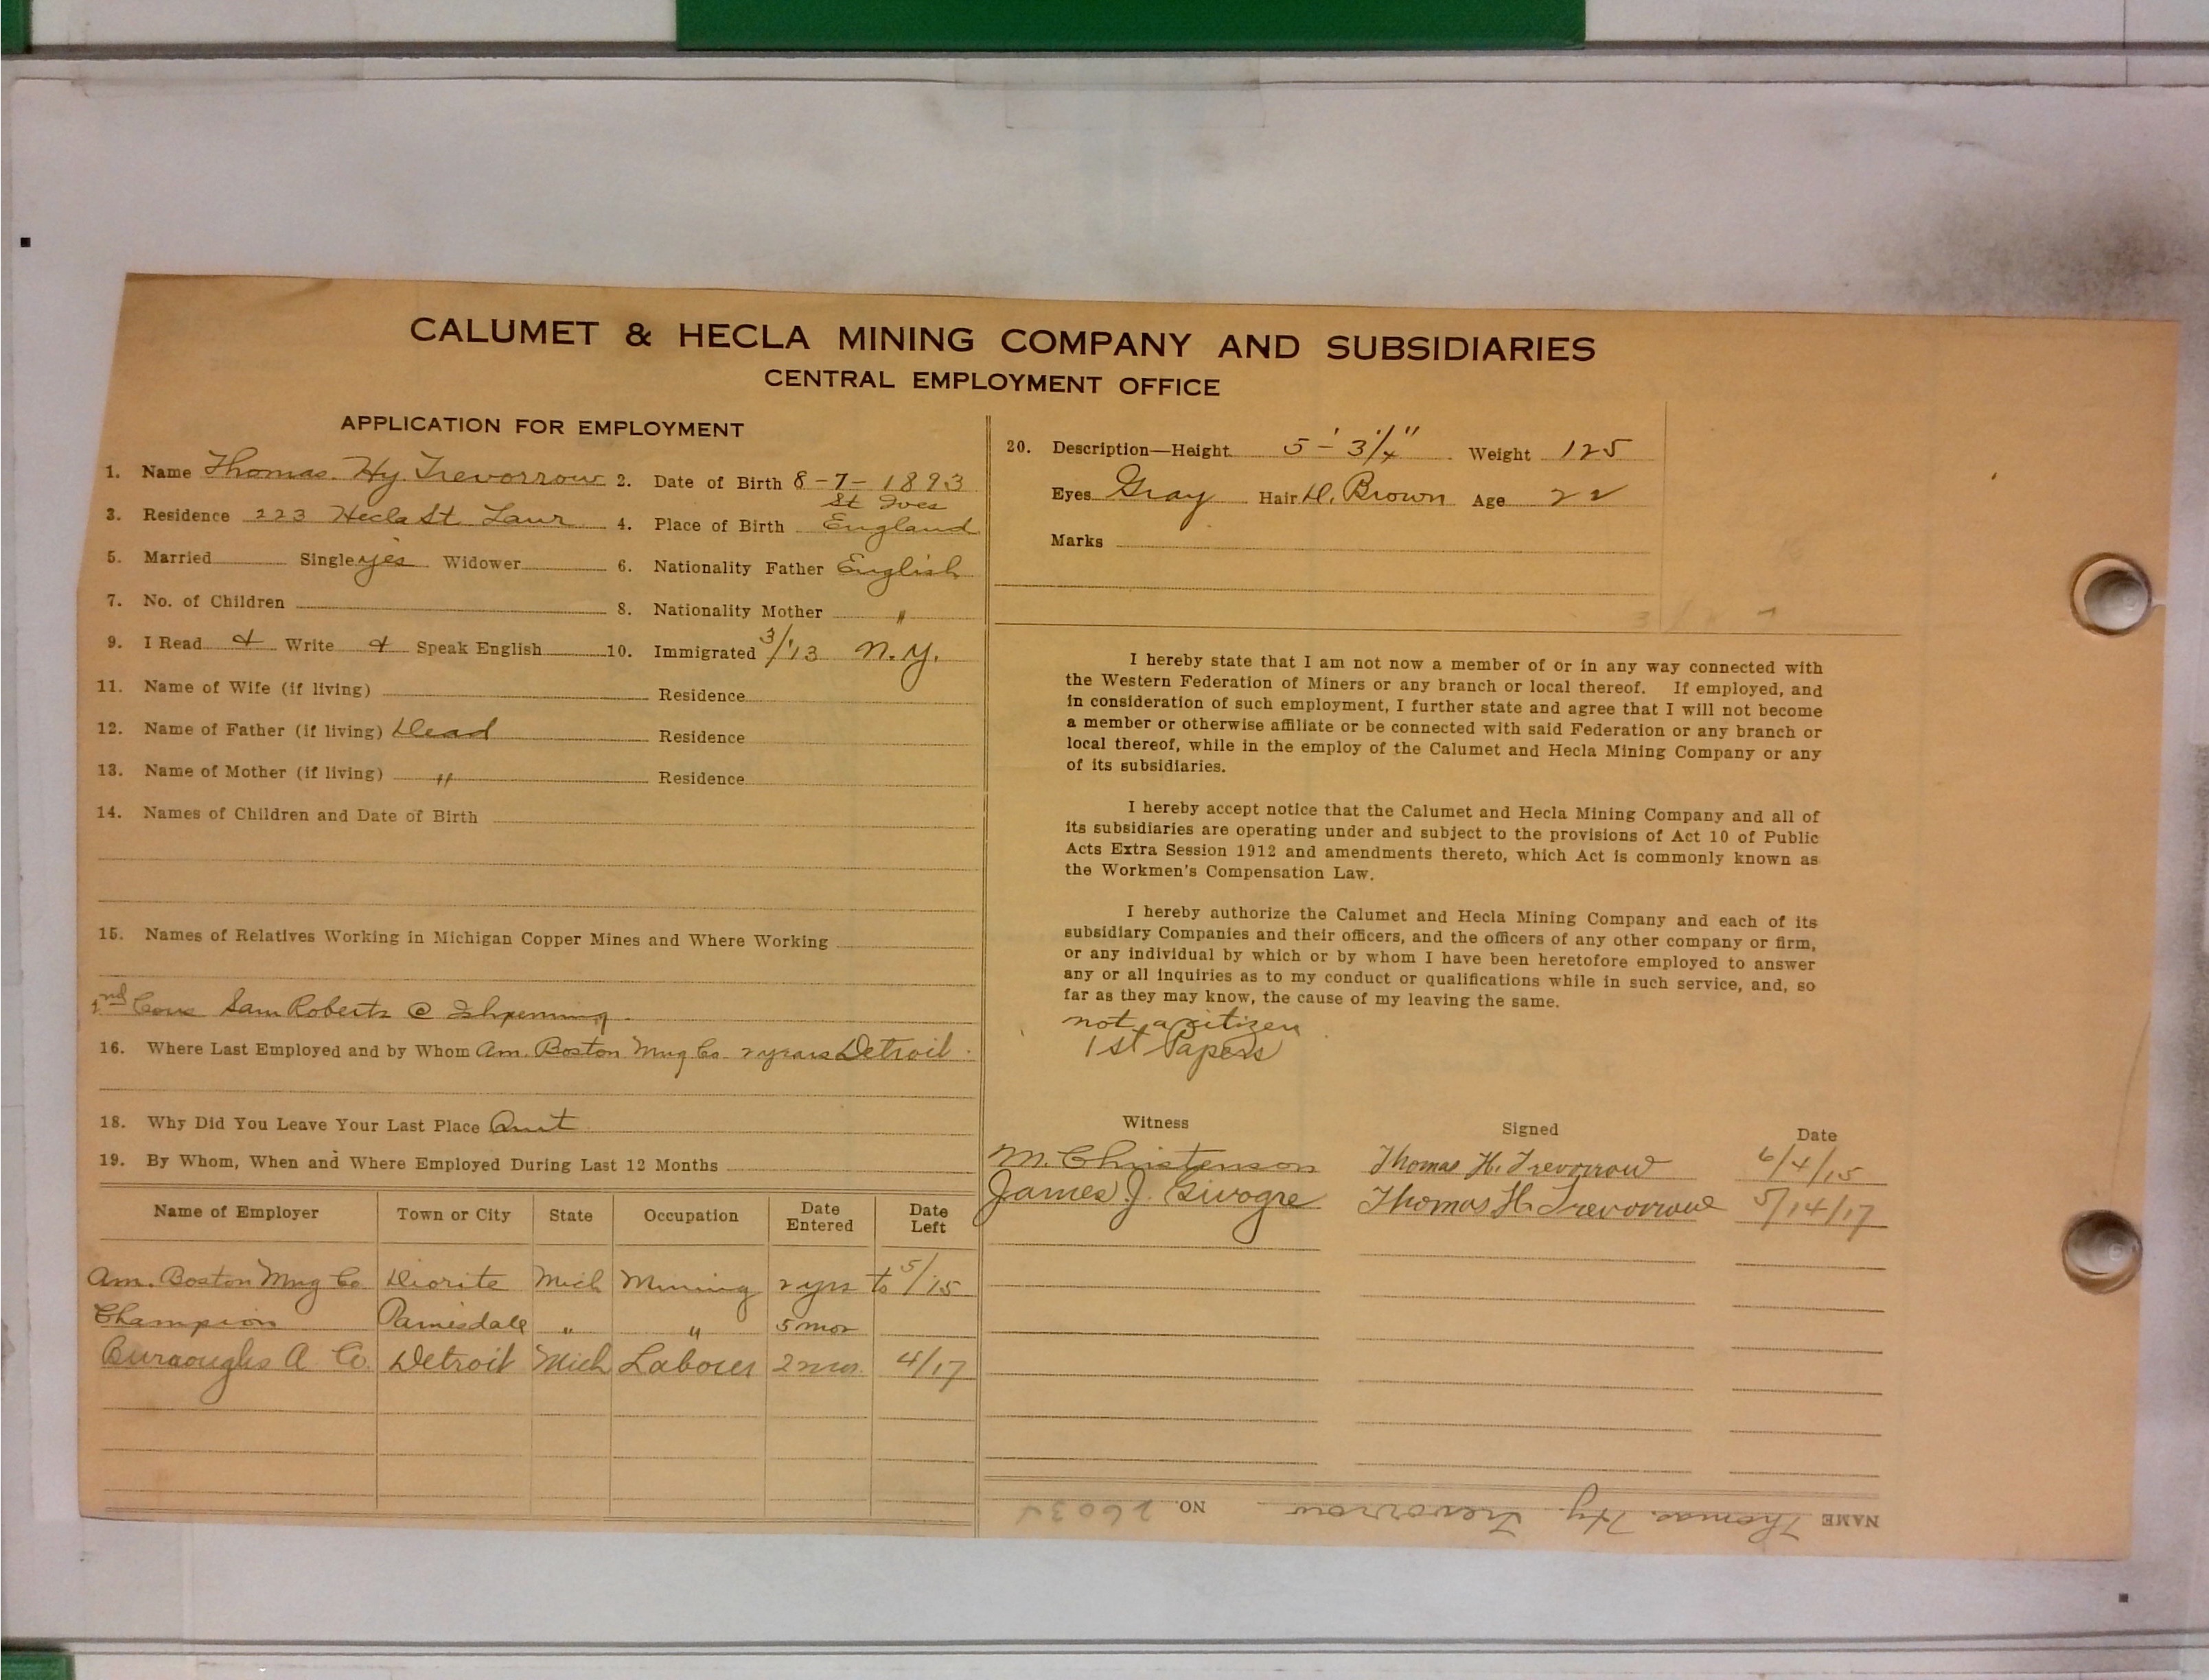 CALUMET & HECLA MINING COMPANY AND SUBSIDIARIES
CENTRAL EMPLOYMENT OFFICE
APPLICATION FOR EMPLOYMENT
1. Name Thomas. Hy. Trevorrow 2. Date of Birth 8-7-1893
3. Residence 223 Hecla St. Laur 4. Place of Birth St Ives England
5. Married Single yes Widower 6. Nationality Father English
7. No. of Children 8. Nationality Mother "
9. I Read & Write & Speak English 10. Immigrated 3/'13 N.Y.
11. Name of Wife (if living) Residence
12. Name of Father (if living) Dead Residence
13. Name of Mother (if living) " Residence
14. Names of Children and Date of Birth
15. Names of Relatives Working in Michigan Copper Mines and Where Working
Sam Roberts @ Ishpeming.
16. Where Last Employed and by Whom Am. Boston Mng Co. 2 years Detroit.
18. Why Did You Leave Your Last Place Quit
19. By Whom, When and Where Employed During Last 12 Months
Name of Employer Town or City State Occupation Date Entered Date Left
Am. Boston Mng Co. Diorite Mich Mining 2 yrs to 5/'15
Champion Painesdale " " 5 mos
Burroughs A Co. Detroit Mich Laborer 2 mos. 4/17
20. Description—Height 5'-3 1/4" Weight 125
Eyes Gray Hair D. Brown Age 22
Marks
I hereby state that I am not now a member of or in any way connected with
the Western Federation of Miners or any branch or local thereof. If employed, and
in consideration of such employment, I further state and agree that I will not become
a member or otherwise affiliate or be connected with said Federation or any branch or
local thereof, while in the employ of the Calumet and Hecla Mining Company or any
of its subsidiaries.
I hereby accept notice that the Calumet and Hecla Mining Company and all of
its subsidiaries are operating under and subject to the provisions of Act 10 of Public
Acts Extra Session 1912 and amendments thereto, which Act is commonly known as
the Workmen's Compensation Law.
I hereby authorize the Calumet and Hecla Mining Company and each of its
subsidiary Companies and their officers, and the officers of any other company or firm,
or any individual by which or by whom I have been heretofore employed to answer
any or all inquiries as to my conduct or qualifications while in such service, and, so
far as they may know, the cause of my leaving the same.
not a citizen
1st Papers
Witness Signed Date
M. Christenson Thomas H. Trevorrow 6/4/15
James J. Givogre Thomas H. Trevorrow 5/14/17
NAME Thomas. Hy. Trevorrow NO.